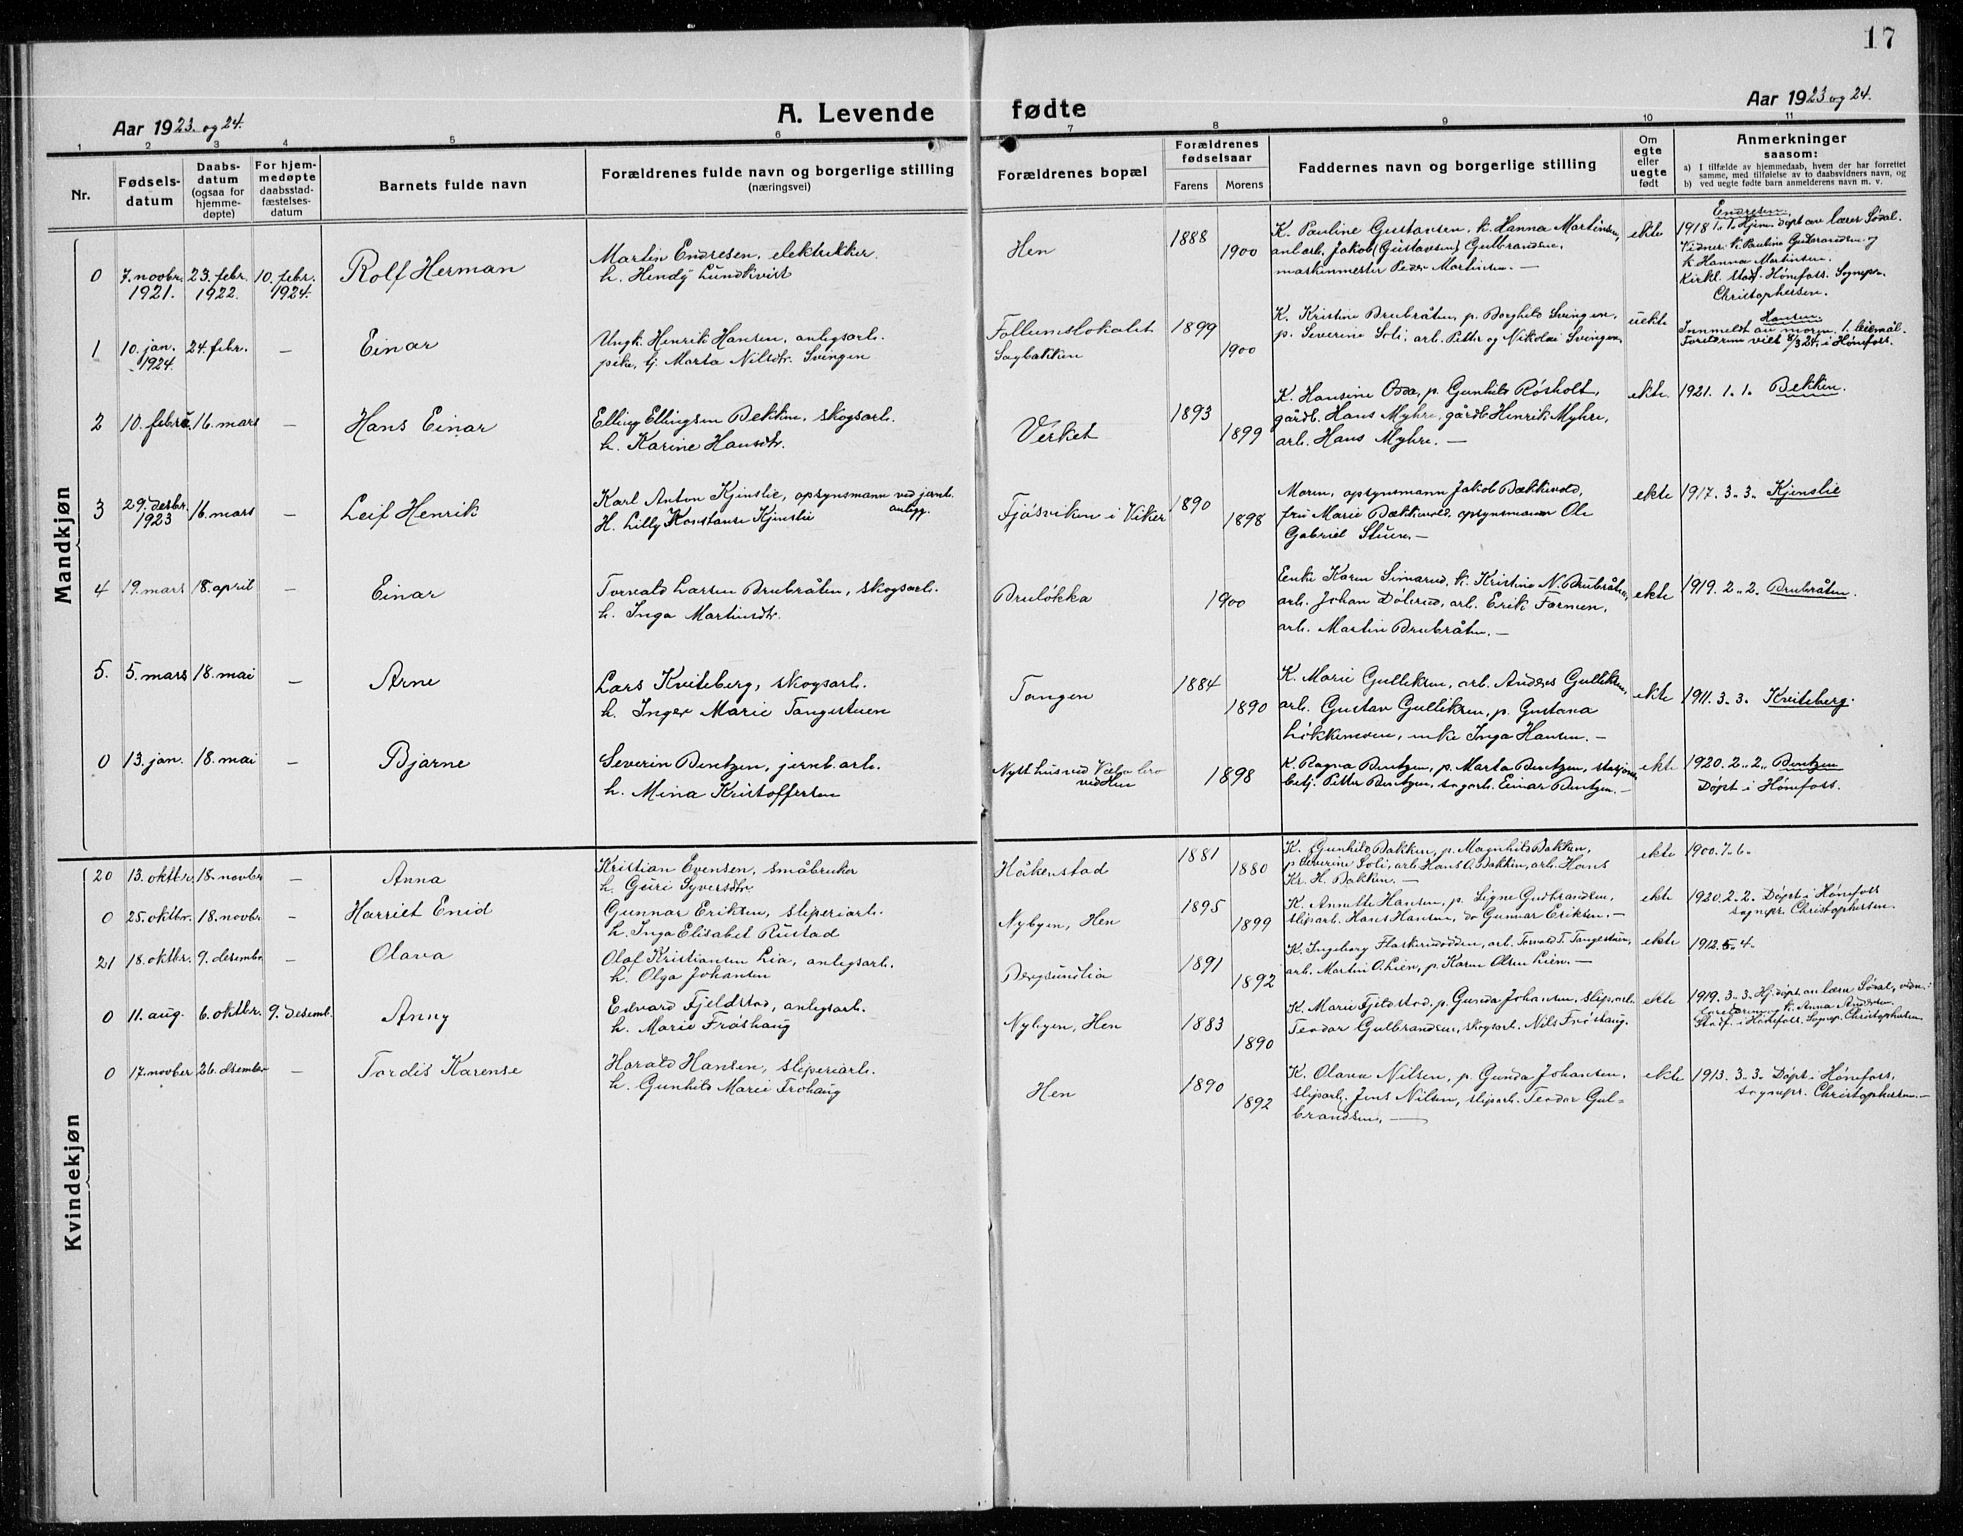 17
Aar 1923 og 24.
A. Levende fødte
Aar 1923 og 24.
1 2 3 4 5 6 7 8 9 10 11
Nr.
Fødsels-
datum
Daabs-
datum
(ogsaa for
hjemme-
døpte)
For hjem-
medøpte
daabsstad-
fæstelses-
datum
Barnets fulde navn
Forældrenes fulde navn og borgerlige stilling
(næringsvei)
Forældrenes bopæl
Forældrenes
fødselsaar
Farens Morens
Faddernes navn og borgerlige stilling
Om
egte
eller
uegte
født
Anmerkninger
saasom:
a) I tilfælde av hjemmedaab, hvem der har forrettet
samme, med tilføielse av to daabsvidners navn, og
b) ved uegte fødte barn anmelderens navn m. v.
Mandkjøn
0 7. novbr. 1921. 23. febr. 1922. 10. febr. 1924. Rolf Herman
Martin Endresen, elektrikker
h. Hendy Lundkvist
Hen 1888 1900
K. Pauline Gustavsen, k. Hanna Martinsen,
anl.arb. Jakob (Gustavsen) Gulbrandsen,
maskinmester Peder Martinsen. —
ekte
Endresen
1918 1. 1. Hjem. døpt av lærer Sødal.
Vidner: k. Pauline Gulbrandsen og
k. Hanna Martinsen.
Kirkl. stadf. Hønefoss. Sognepr.
Christophersen.
1 10. jan. 1924. 24. febr. — Einar
Ungk. Henrik Hansen, anlegsarb.
pike, tj. Marta Nilsdtr. Svingen
Follumslokalet
Sagbakken
1899 1900
K. Kristine Brubråten, p. Borghild Svingen,
p. Severine Soli, arb. Petter og Nikolai Svingen.
uekte
Hansen
Innmeldt av moren. 1. leiermål.
Foreldrene viet 8/3 24. i Hønefoss.
2 10. febr. 16. mars — Hans Einar
Elling Ellingsen Bekken, skogsarb.
h. Karine Hansdtr.
Verket 1893 1899
K. Hansine Odda, p. Gunhild Røsholt,
gårdb. Hans Myhre, gårdb. Henrik Myhre,
arb. Hans Myhre. —
ekte. 1921. 1. 1. Bekken.
3 29. desbr. 1923 16. mars — Leif Henrik
Karl Anton Kjenslie, opsynsmann ved jernb.
anlegg.
H. Lilly Konstanse Kjenslie
Fjøsviken i Viker 1890 1898
Moren, opsynsmann Jakob Bækkevold,
fru Marie Bækkevold, opsynsmann Ole
Gabriel Stuen. —
ekte 1917. 3. 3. Kjenslie
4 19. mars 18. april — Einar
Torvald Larsen Brubråten, skogsarb.
h. Inga Martinsdtr.
Bruløkka 1900
Enke Karen Simarud, k. Kristine N. Brubråten,
arb. Johan Dølerud, arb. Erik Formen,
arb. Martin Brubråten. —
ekte 1919. 2. 2. Brubråten.
5. 5. mars 18. mai — Arne
Lars Kviteberg, skogsarb.
h. Inger Marie Tangestuen
Tangen 1884 1890
K. Marie Gulliksen, arb. Anders Gulliksen,
arb. Gustav Gulliksen, p. Gustava
Løkkemoen, enke Inga Hansen. —
ekte 1911. 3. 3. Kviteberg.
0 13. jan. 18. mai — Bjarne
Severin Bentzen, jernb.arb.
h. Mina Kristoffersen
Nytt hus ved Væla bro
ved Hen
1898
K. Ragna Bentzen, p. Marta Bentzen, stasjons-
betj. Petter Bentzen, sagarb. Einar Bentzen. —
ekte 1920. 2. 2. Bentzen
Døpt i Hønefoss.
Kvindekjøn
20 13. oktbr. 18. novbr — Anna
Kristian Evensen, småbruker
h. Guri Syversdtr.
Håkenstad 1881 1880
K. Gunhild Bakken, p. Magnhild Bakken,
p. Severine Soli, arb. Hans O. Bakken, arb. Hans
Kr. H. Bakken. —
ekte 1900. 7. 6.
0 25. oktbr. 18. novbr. — Harriet Enid
Gunnar Eriksen, sliperiarb.
h. Inga Elisabet Rustad
Nybyen, Hen 1895 1899
K. Annette Hansen, p. Signe Gudbrandsen,
sliparb. Hans Hansen, do Gunnar Eriksen. —
ekte 1920. 2. 2. Døpt i Hønefoss
sognepr. Christophersen.
21 18. oktbr. 9. desembr — Olava
Olaf Kristiansen Lia, anlegsarb.
h. Olga Johansen
Bergsundlia 1891 1892
K. Ingeborg Flaskerudodden, arb. Torvald T. Tangestuen,
arb. Martin O. Lien, p. Karen Olsen Lien. —
ekte 1912. 5. 4.
0 11. aug. 6. oktbr. 9. desemb. Anny
Edvard Fjeldstad, anlegsarb.
h. Marie Frøshaug
Nybyen, Hen 1883 1890
K. Marie Fjeldstad, p. Gunda Johansen, slip.arb.
Teodor Gulbrandsen, skogsarb. Nils Frøshaug.
ekte 1919. 3. 3. Hj. døpt av lærer Sødal, vidn.:
foreldrene og k. Anna Andersen.
Stadf. i Hønefoss. Sognep. Christophersen
0 17. novber 26. desember — Tordis Karense
Harald Hansen, sliperiarb.
h. Gunhild Marie Frøhaug
Hen 1890 1892
K. Olava Nilsen, p. Gunda Johansen,
sliparb. Jens Nilsen, sliparb. Teodor Gul=
brandsen. —
ekte 1913. 3. 3. Døpt i Hønefoss,
sognepr. Christophersen. —